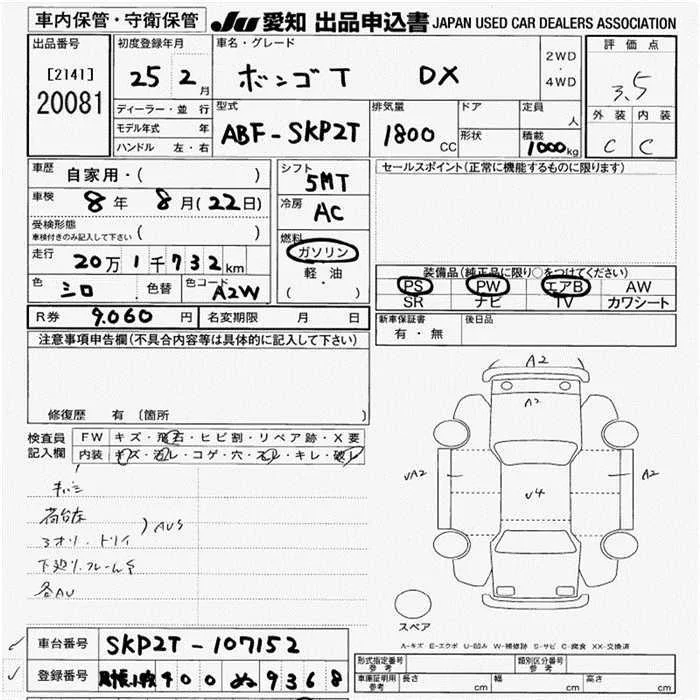 車内保管・守衛保管 JU 愛知 出品申込書 JAPAN USED CAR DEALERS ASSOCIATION
出品番号
[2141]
20081
初度登録年月
25 2月
車名・グレード
ボンゴT DX
2WD
・
4WD
評価点
3.5
外装 内装
C C
ディーラー・並行
モデル年式 年
ハンドル 左・右
型式
ABF-SKP2T
排気量
1800 CC
ドア
形状
定員
人
積載
1000kg
車歴 自家用・( )
車検 8年 8月(22日)
受検形態
車検付きのみ記入して下さい ( )
走行 20万1千732km
色 シロ 色替 色コード A2W
シフト
5MT
冷房
AC
燃料
ガソリン
・
軽油
( )
セールスポイント(正常に機能するものに限ります)
装備品(純正品に限り○をつけてください)
PS PW エアB AW
SR ナビ TV カワシート
R券 9.060円 名変期限 月 日
新車保証書
有・無
後日品
注意事項申告欄(不具合内容等は具体的に記入して下さい)
修復歴 有 (箇所 )
検査員
記入欄
FW キズ・飛石・ヒビ割・リペア跡・X要
内装 キズ・汚レ・コゲ・穴・スレ・キレ・破レ
荷台床
下廻り.フレーム
各AU
A2
A2
√A2
√4
A2
スペア
A-キズ E-エクボ U-凹み W-補修跡 S-サビ C-腐食 XX-交換済
車台番号 SKP2T-107152
登録番号 400 ぬ 9368
形式指定番号
参考
類別区分番号
参考
車庫証明用
参考
長さ cm 幅 cm 高さ cm